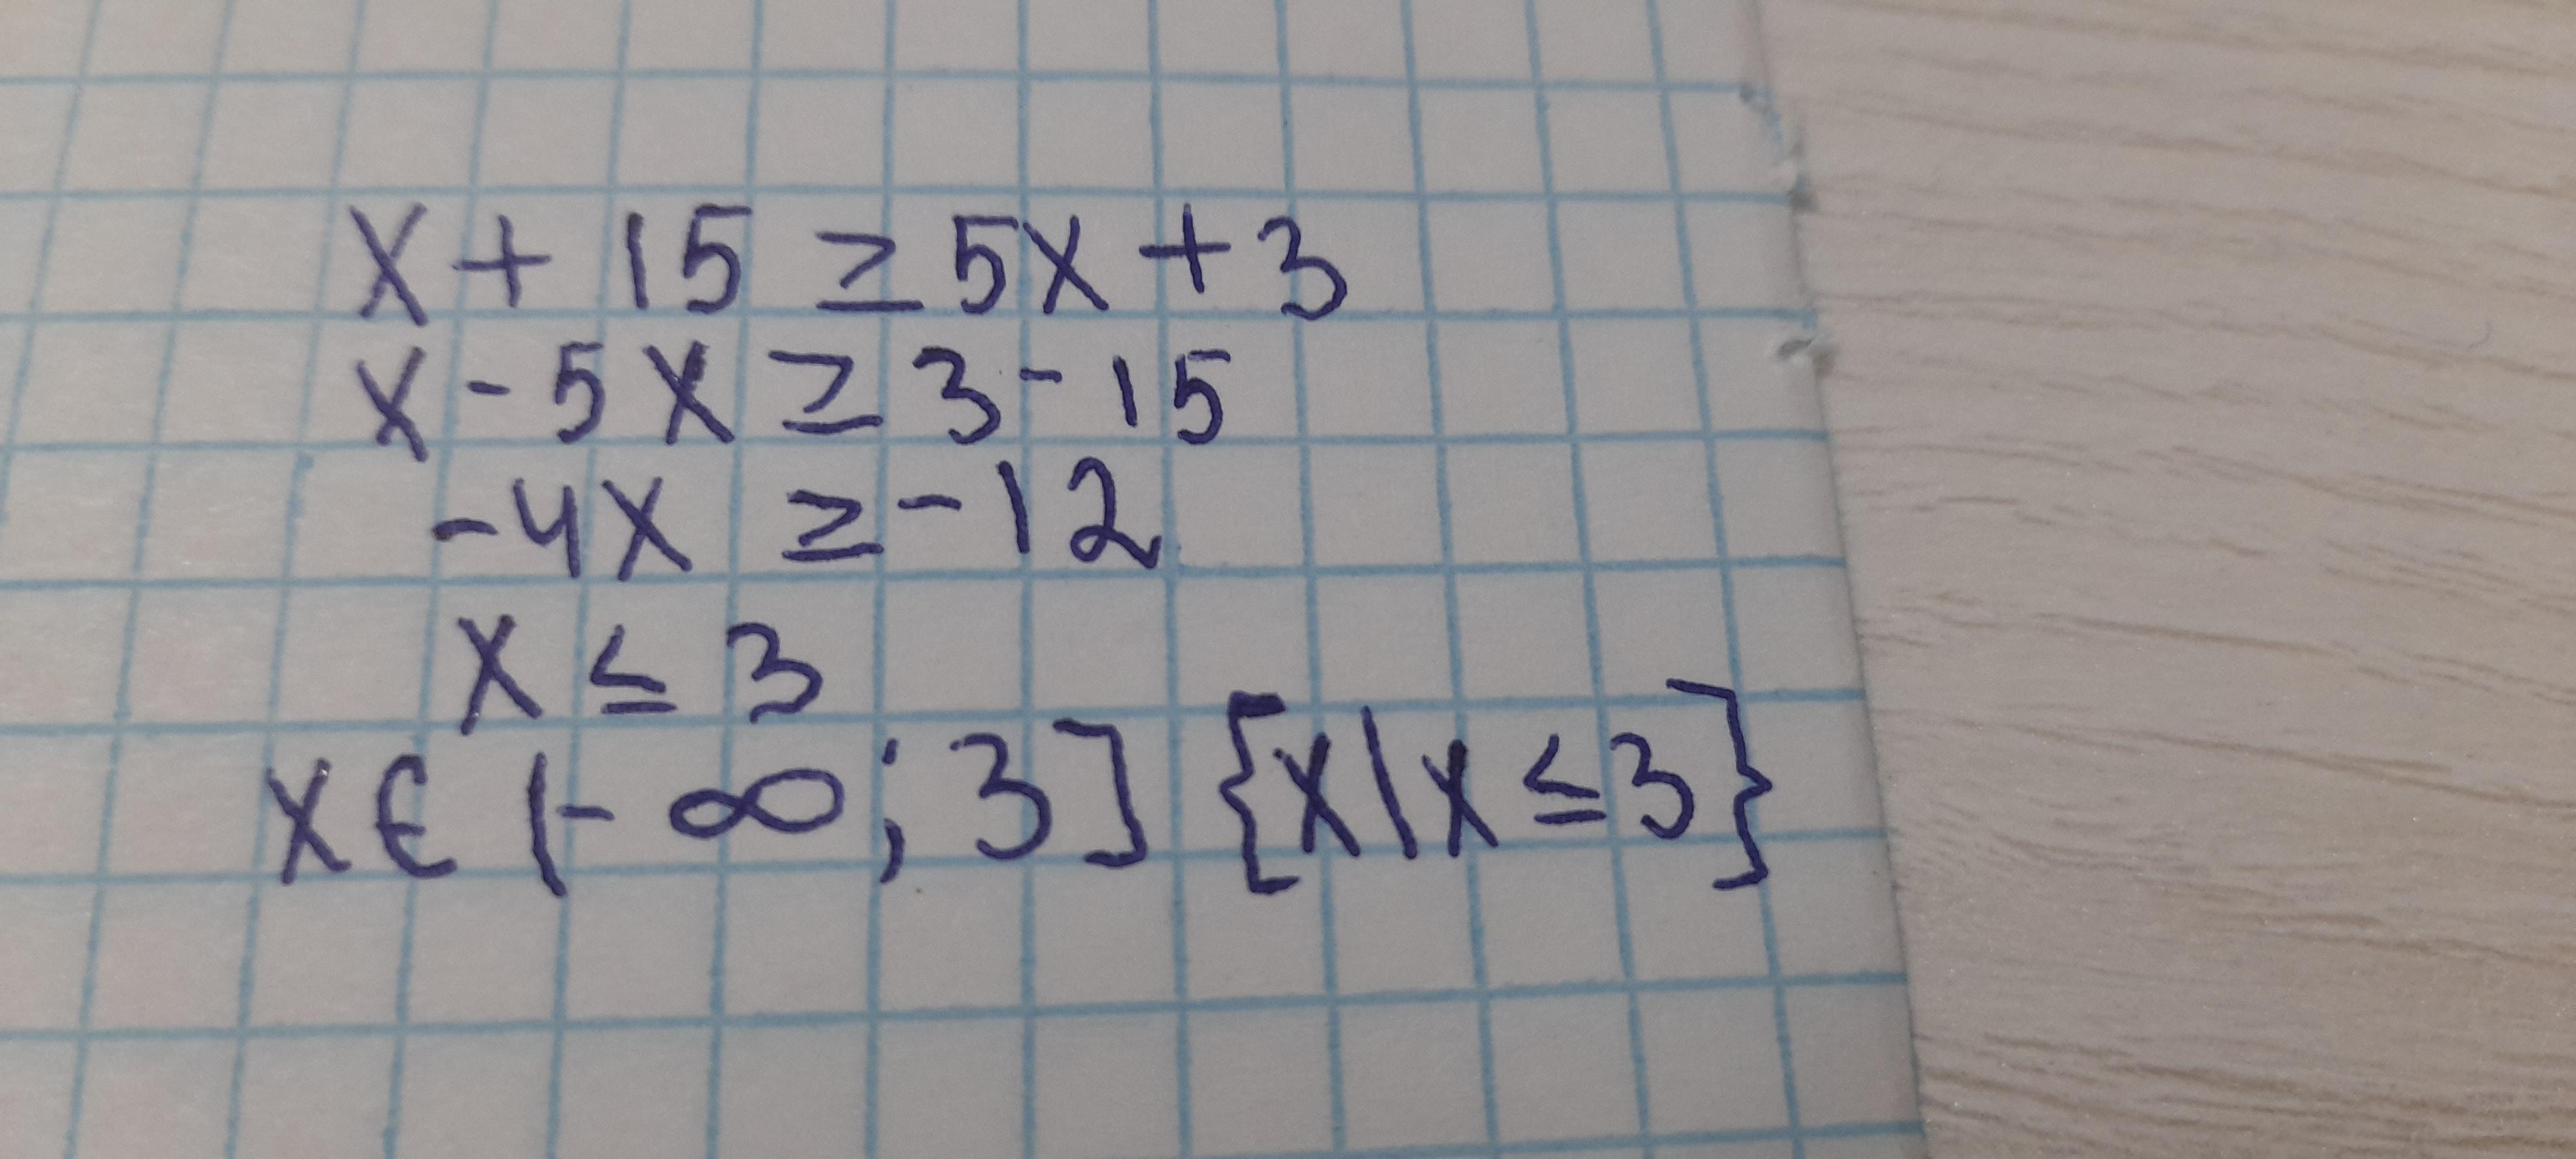 x + 15 ≥ 5x + 3
x - 5x ≥ 3 - 15
-4x ≥ -12
x ≤ 3
x ∈ (- ∞; 3] {x|x ≤ 3}